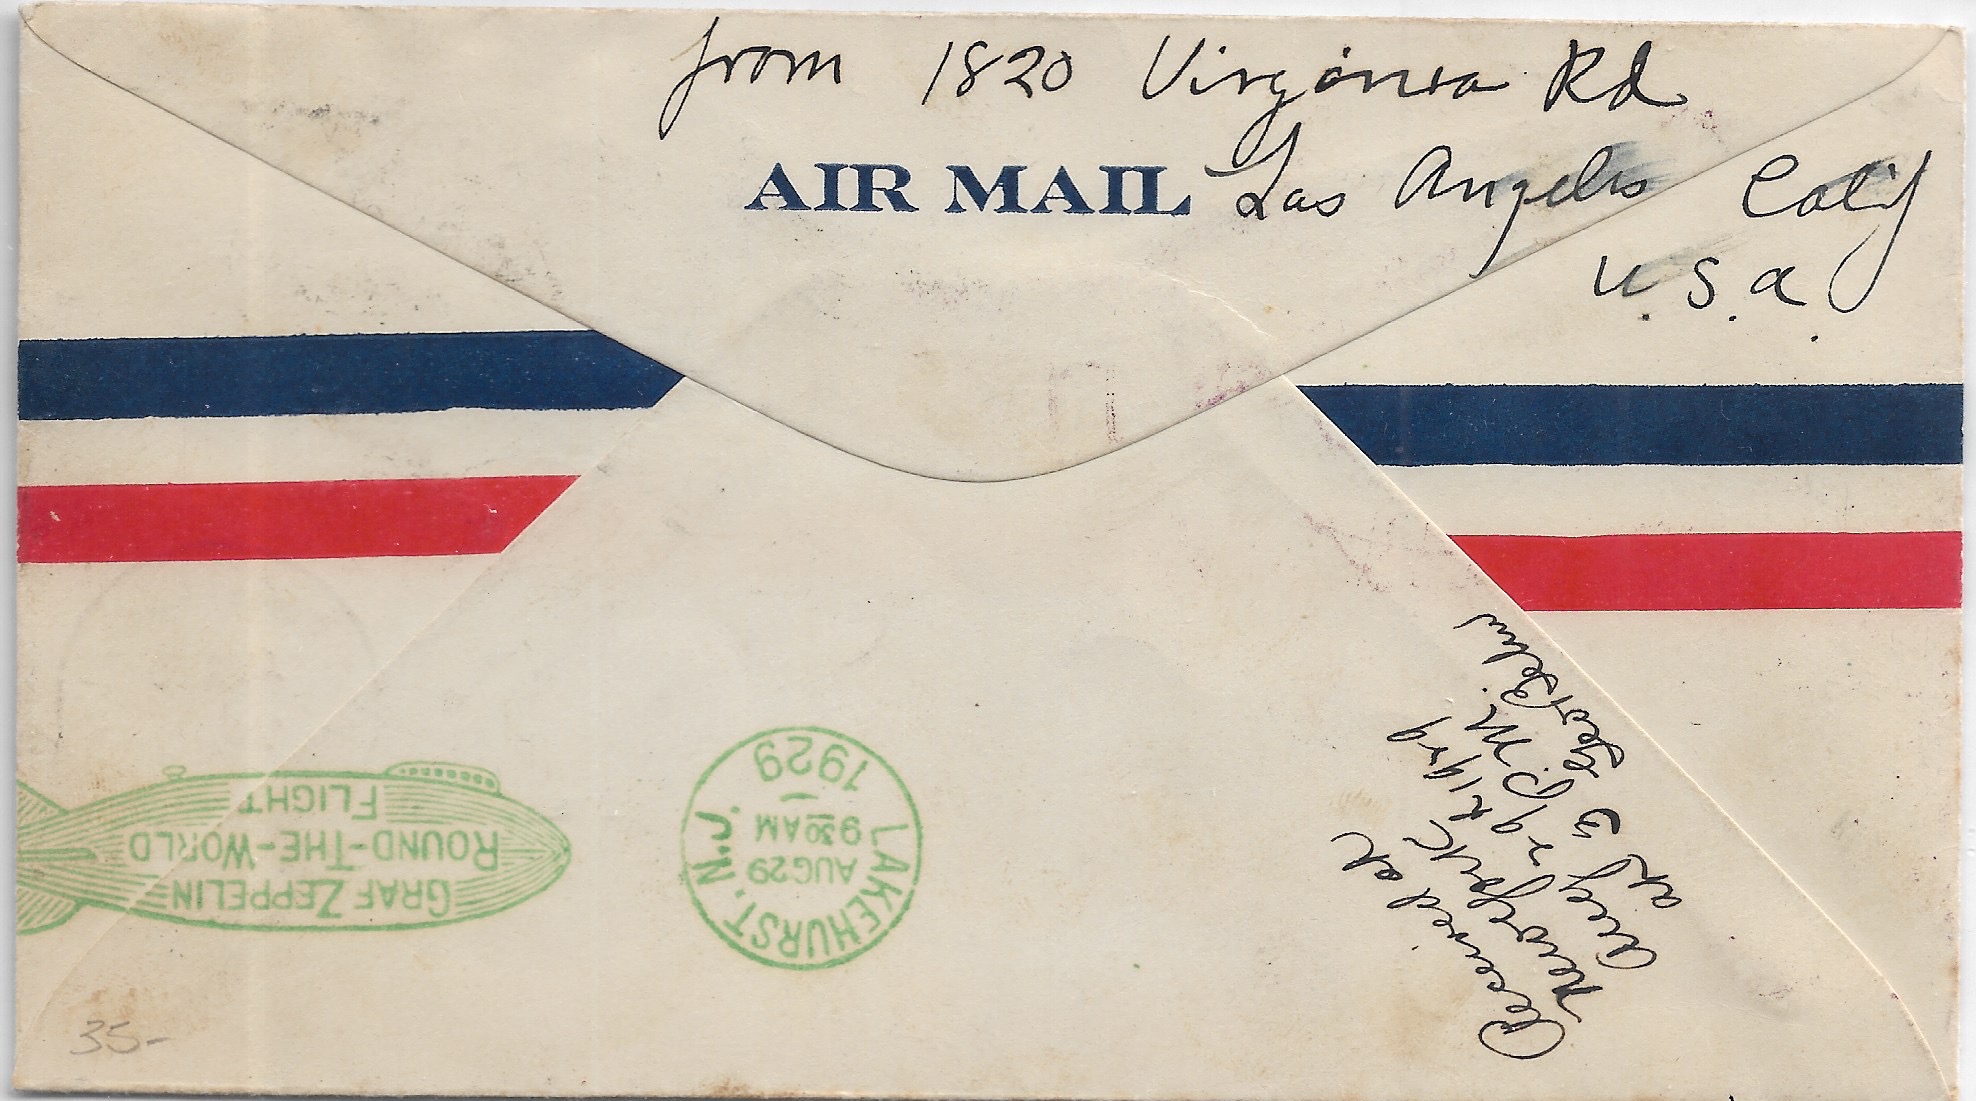 from 1820 Virginia Rd
AIR MAIL Los Angeles Calif
U.S.A.
Received at
New York
Aug 29th 1929
at 3 P.M.
Geo
GRAF ZEPPELIN
ROUND-THE-WORLD
FLIGHT
LAKEHURST, N.J.
AUG 29
9 30 AM
1929
35-